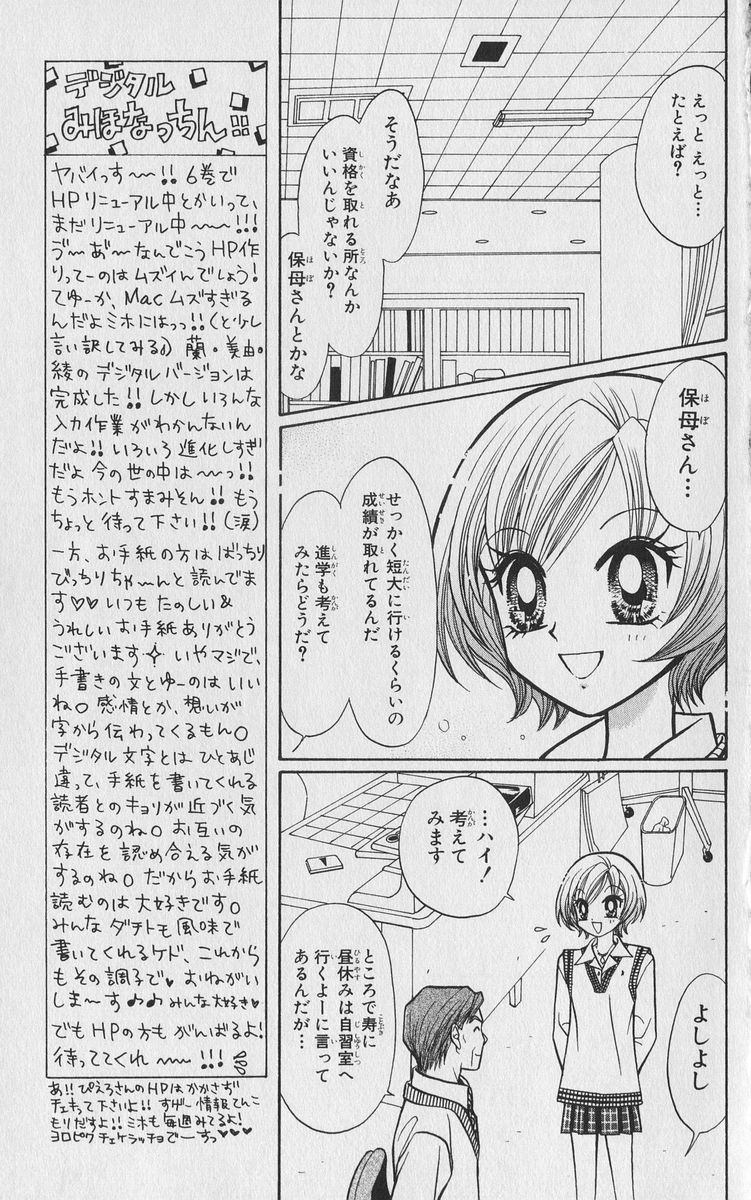 えっと えっと…
たとえば？
そうだなあ
資格を取れる所なんか
いいんじゃないか？
保母さんとかな
保母さん…
せっかく短大に行けるくらいの
成績が取れてるんだ
進学も考えて
みたらどうだ？
…ハイ！
考えて
みます
よしよし
ところで寿に
昼休みは自習室へ
行くよーに言って
あるんだが…
デジタル
みほなっちん!!
ヤバイっす〜〜!! 6巻で
HPリニューアル中とかいって、
まだリニューアル中〜〜!!!
ゔ〜あ゙〜なんでこうHP作
りってーのはムズイんでしょう!
てゆーか、Macムズすぎる
んだよミホにはっっ!!(と少し
言い訳してみる) 蘭・美由・
綾のデジタルバージョンは
完成した!! しかしいろんな
入力作業がわかんないん
だよ!! いろいろ進化しすぎ
だよ今の世の中は〜〜っ!!
もうホントすまみそん!! もう
ちょっと待って下さい!!(涙)
一方、お手紙の方はばっちり
びっちりちゃ〜んと読んでま
す♡♡いつもたのしい&
うれしいお手紙ありがとう
ございます✧ いやマジで、
手書きの文とゆーのはいい
ね。感情とか、想いが
字から伝わってくるもん。
デジタル文字とはひとあじ
違って、手紙を書いてくれる
読者とのキョリが近づく気
がするのね。お互いの
存在を認め合える気が
するのね。だからお手紙
読むのは大好きです。
みんなダチトモ風味で
書いてくれるケド、これから
もその調子で♥おねがい
しま〜す♪♪みんな大好き♥
でもHPの方もがんばるよ!
待っててくれ〜〜!!!
あ!! ぴえろさんのHPはかかさず
チェキって下さいよ!! すげー情報てんこ
もりだすよ!! ミホも毎週みてるよ!
ヨロピクチェケラッチョでーすっ♥♥♥